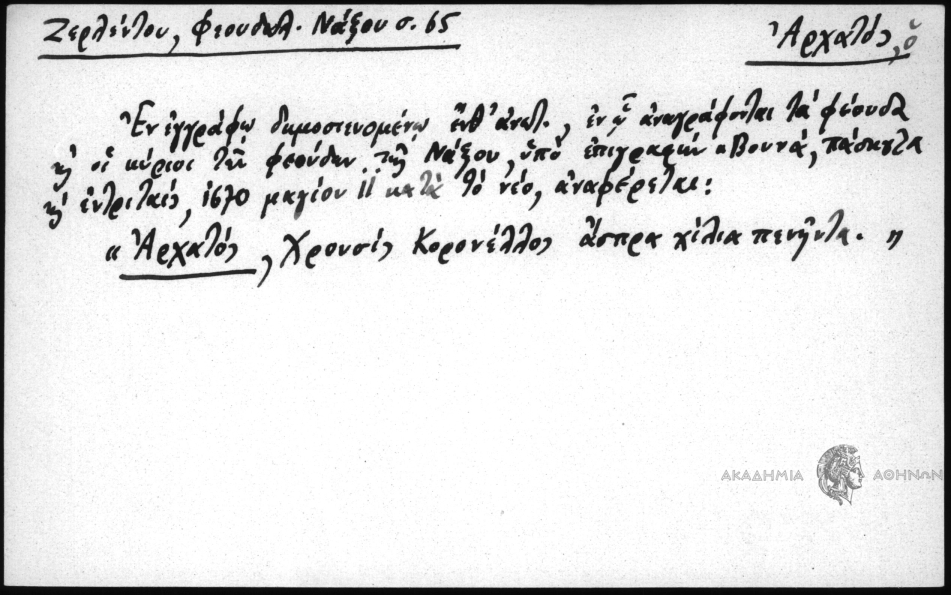 Ζερλέντου, Φεουδαλ. Νάξου σ. 65
Ἀρχατός, ὁ
Ἐν ἐγγράφῳ δημοσιευομένῳ ἔνθ' ἀνωτ., ἐν ᾧ ἀναγράφονται τὰ φέουδα
κ' οἱ κύριοι τῶν φεούδων τῆς Νάξου, ὑπὸ ἐπιγραφὴν «Βουνά, πάσκητα
κ' ἐντριταίς, 1670 μαγίου 11 κατὰ τὸ νέο, ἀναφέρεται:
« Ἀρχατός, Χρουσίς Κορονέλλος ἄσπρα χίλια πενῆντα. »
ΑΚΑΔΗΜΙΑ ΑΘΗΝΩΝ